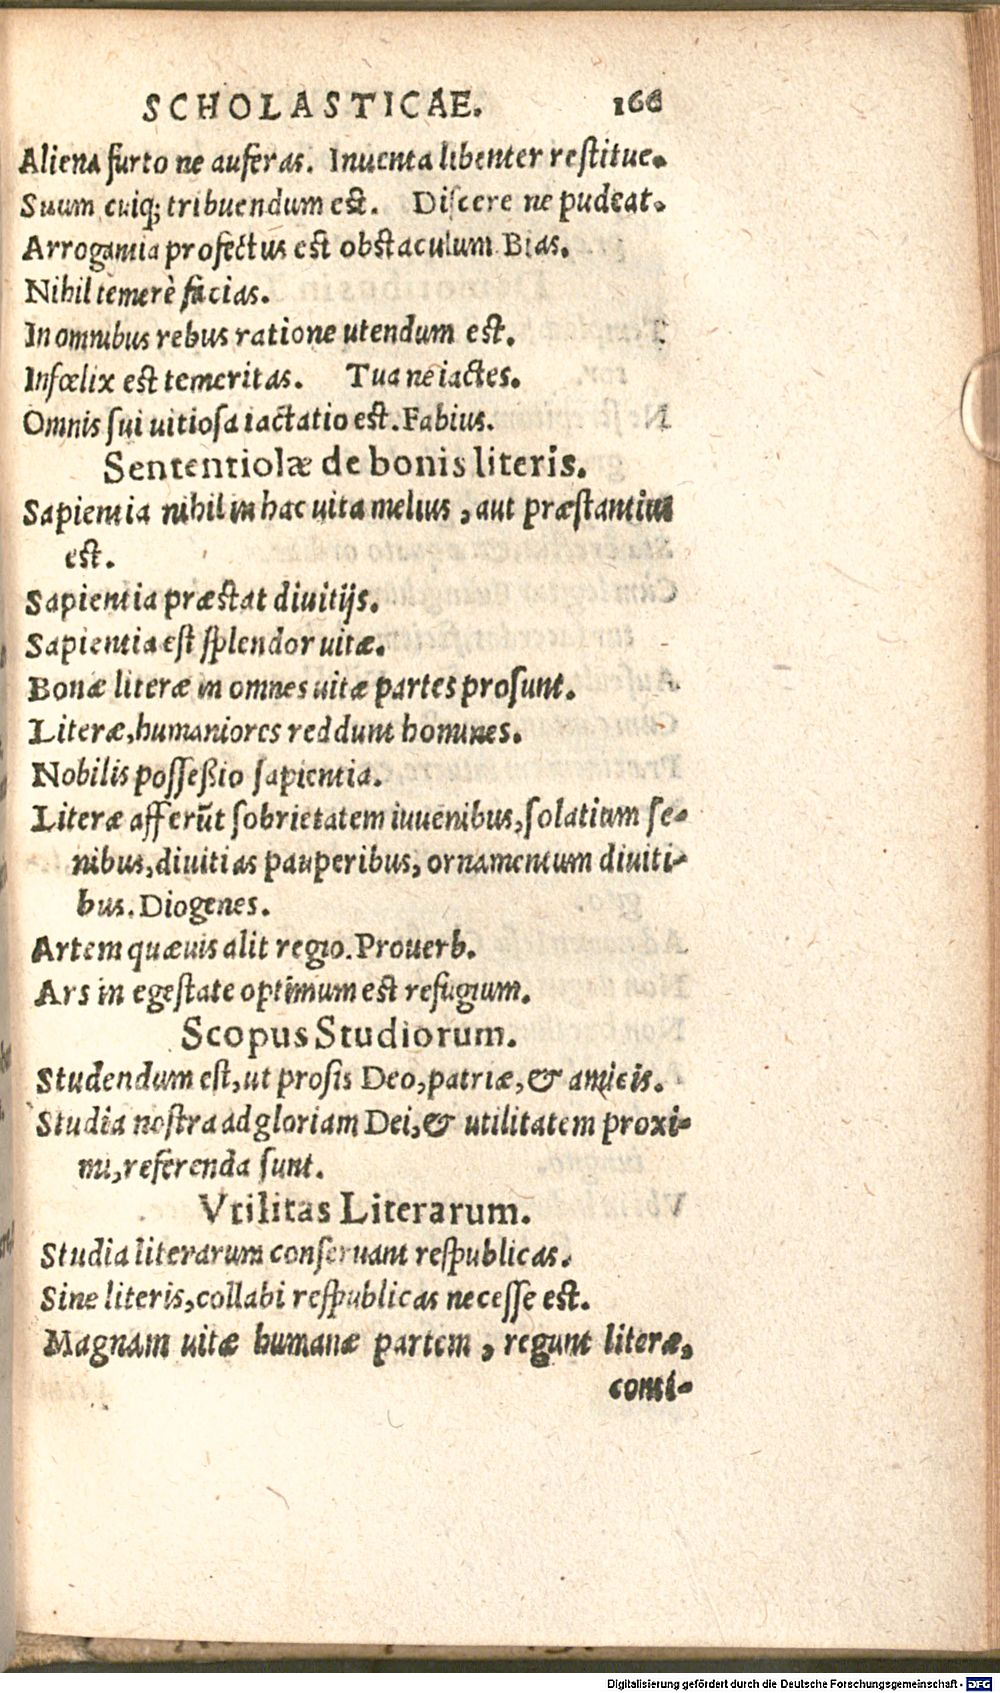 SCHOLASTICAE. 166
Aliena furto ne auferas. Inuenta libenter restitue.
Suum cuiq; tribuendum est. Discere ne pudeat.
Arrogantia profectus est obstaculum Bias.
Nihil temerè facias.
In omnibus rebus ratione utendum est.
Infœlix est temeritas. Tua ne iactes.
Omnis sui uitiosa iactatio est. Fabius.
Sententiolæ de bonis literis.
Sapientia nihil in hac uita melius, aut præstantius
est.
Sapientia præstat diuitijs.
Sapientia est splendor uitæ.
Bonæ literæ in omnes uitæ partes prosunt.
Literæ, humaniores reddunt homines.
Nobilis posseßio sapientia.
Literæ afferũt sobrietatem iuuenibus, solatium se-
nibus, diuitias pauperibus, ornamentum diuiti-
bus. Diogenes.
Artem quæuis alit regio. Prouerb.
Ars in egestate optimum est refugium.
Scopus Studiorum.
Studendum est, ut prosis Deo, patriæ, & amicis.
Studia nostra ad gloriam Dei, & utilitatem proxi-
mi, referenda sunt.
Vtilitas Literarum.
Studia literarum conseruant respublicas.
Sine literis, collabi respublicas necesse est.
Magnam uitæ humanæ partem, regunt literæ,
conti-
Digitalisierung gefördert durch die Deutsche Forschungsgemeinschaft - DFG